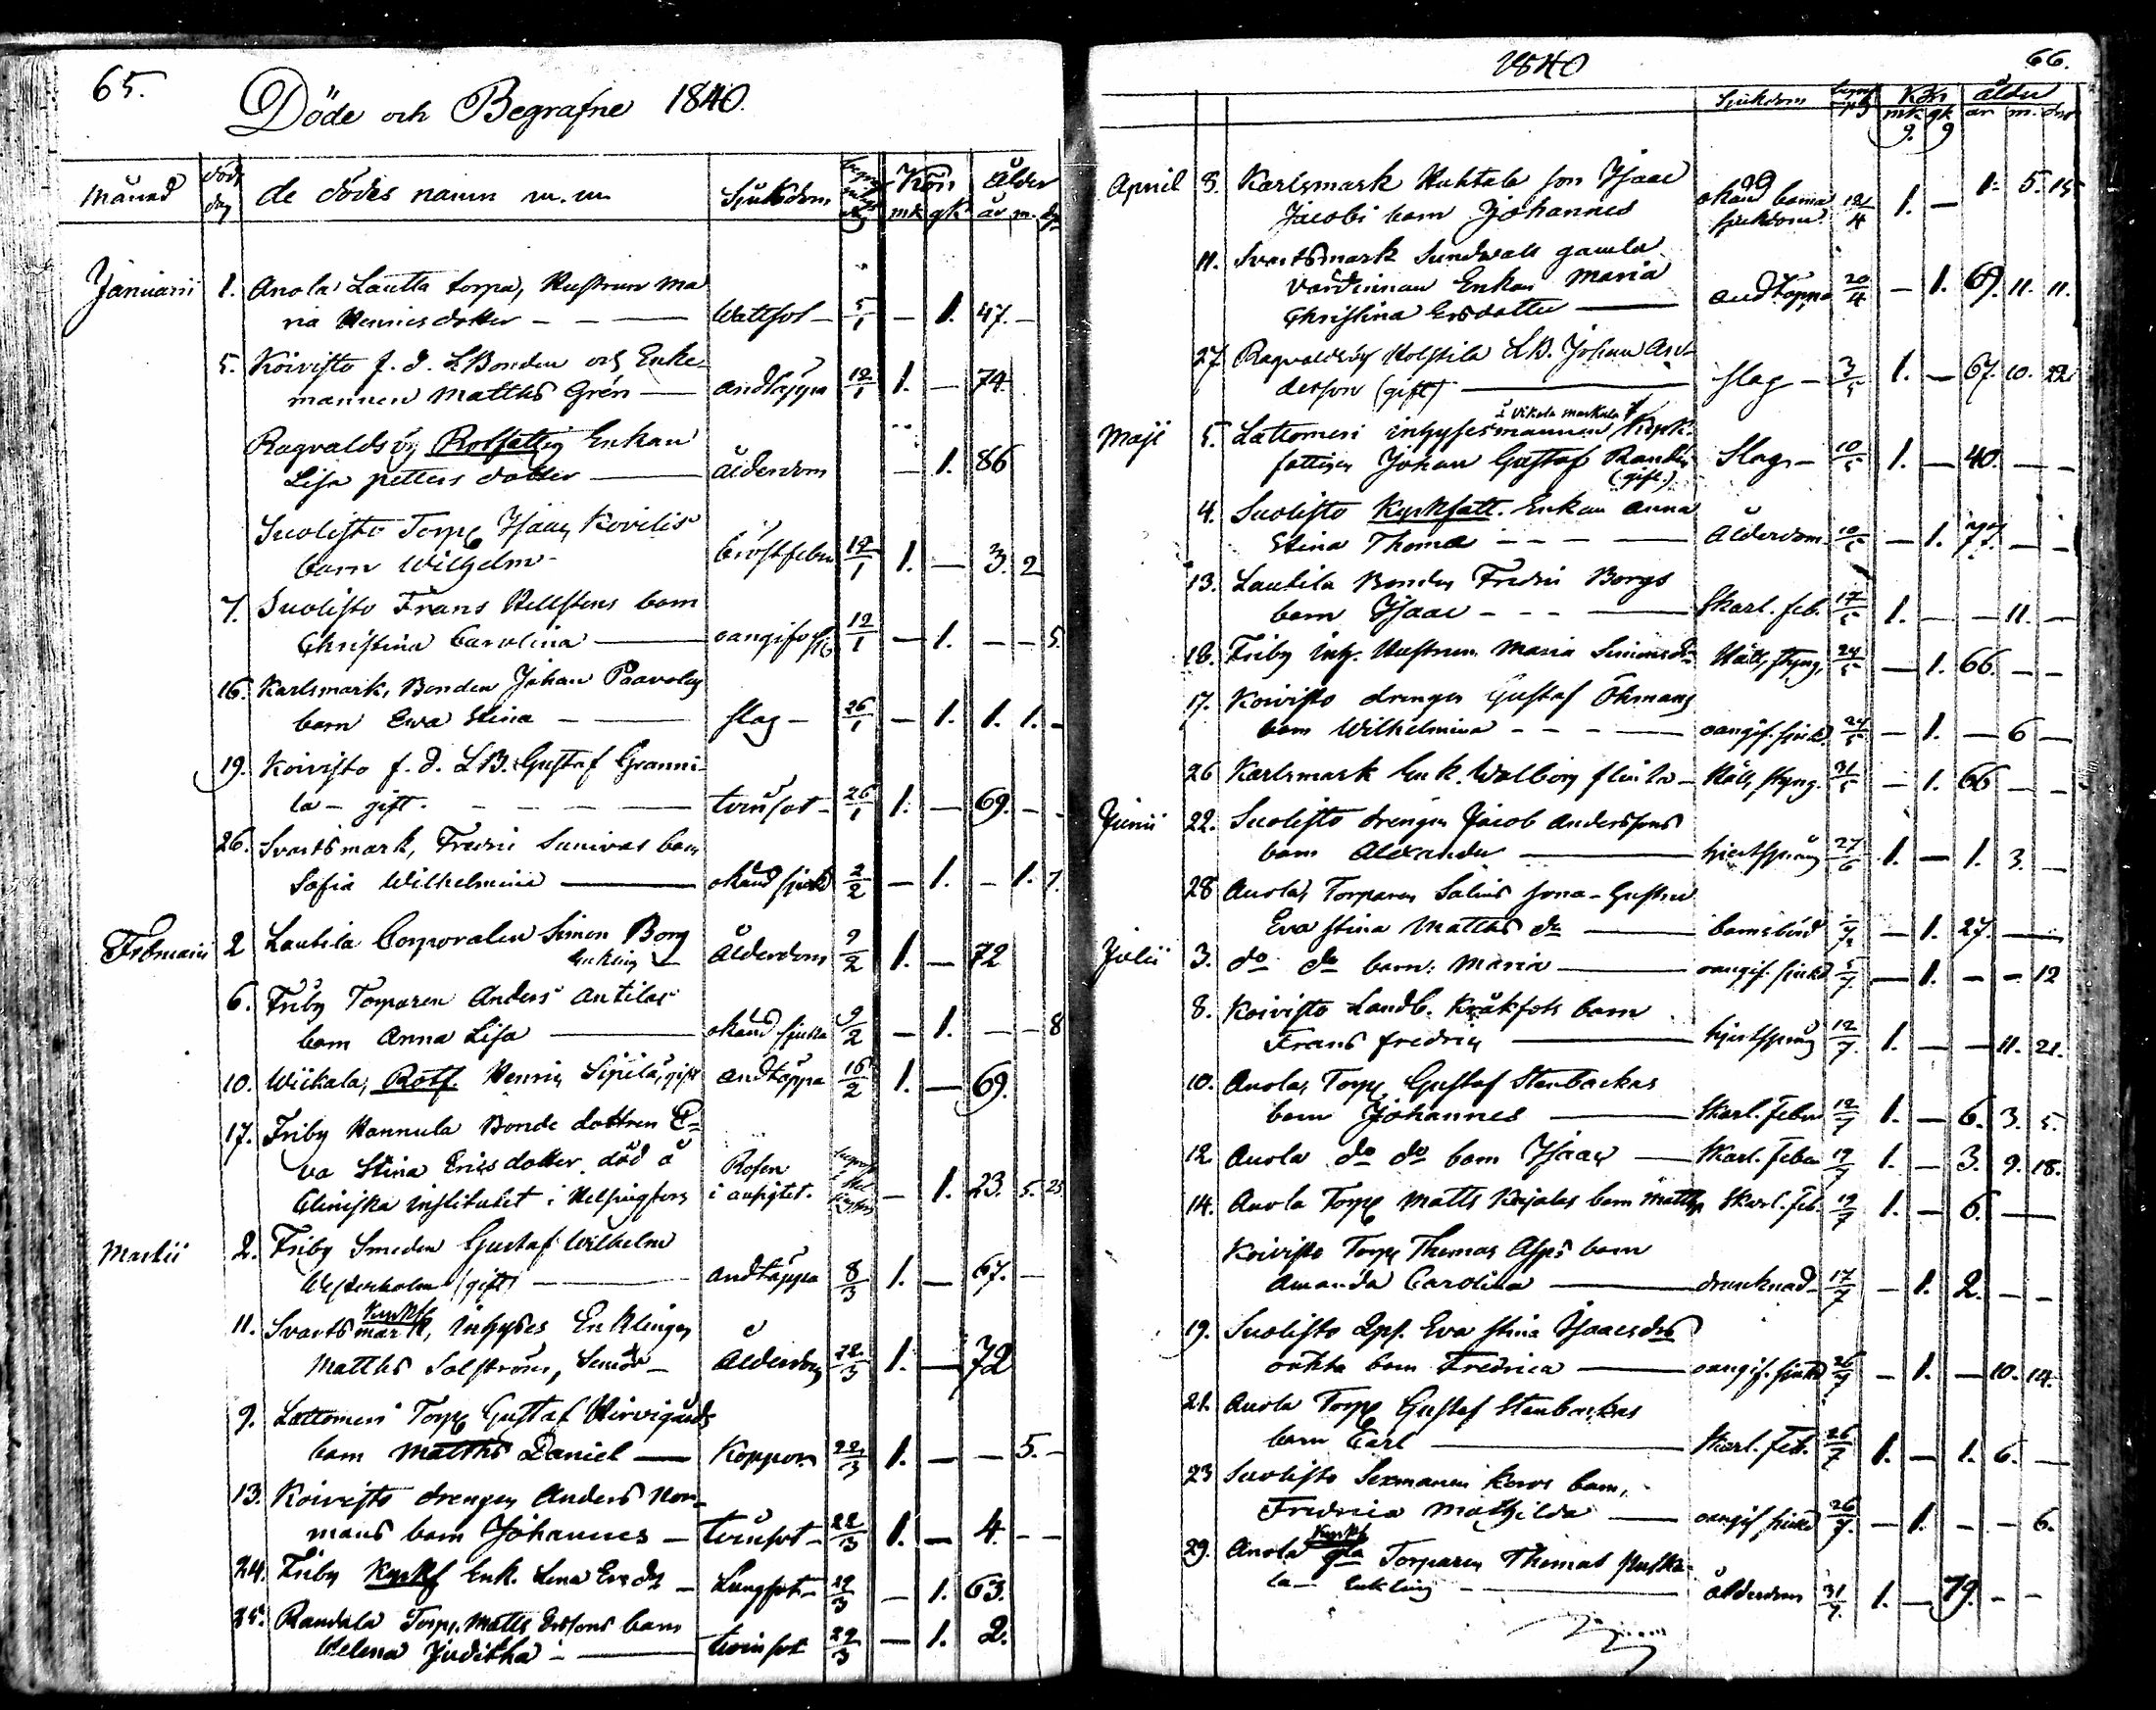 65.
Döde och Begrafne 1840.
Månad död dag de dödes namn m. m Sjukdom Kön mk qk ålder år m. dg
Januarii 1. Anola Lautta torpa, Hustrun Ma
ria Henricsdotter - - Wattsot - 5/1 - 1. 47. -
5. Koivisto f. d. LBonden och Enke-
mannen Matths Grén andtäppa 12/1 1. - 74.
Ragvaldsby Rotfattig Enkan
Lisa petters dotter ålderdom - 1. 86
Suolisto Torp Isaac Kovilis
barn Wilhelm - bröstfeber 12/1 1. - 3. 2
7. Suolisto Frans Hellstens barn
Christina Carolina oangifven 12/1 - 1. - - 5.
16. Karlsmark, Bonden Johan Paavolas
barn Ewa Stina slag - 26/1 - 1. 1. 1. -
19. Koivisto f. d. LB. Gustaf Granni-
la - gift. tvinsot - 26/1 1. - 69. - -
26. Svartsmark, Fredric Sunivas barn
Sofia Wilhelmina okänd sjukd 2/2 - 1. - 1. 7.
Februarii 2 Lautila Corporalen Simon Borg
Enkling Ålderdom 9/2 1. - 72
6. Friby Torparen Anders Antilas
barn Anna Lisa okänd sjukd 9/2 - 1. - - 8
10. Wiikala, Rotf. Henric Sipilä, gift andtäppa 16/2 1. - 69.
17. Friby Hannula Bonde dottren E-
va Stina Ericsdotter död å Rosen
Cliniska institutet i Helsingfors i ansigtet. - 1. 23. 5. 25
Martii 2. Friby Smeden Gustaf Wilhelm
Westerholm (gift) andtäppa 8/3 1. - 67. -
Kyrkf
11. Svartsmark, inhyses Enklingen
Matths Solström, Senior - ålderdom 22/3 1. - 72
9. Lattomeri Torp Gustaf Hirvigårds
barn Matths Daniel Koppor 22/3 1. - - 5. -
13. Koivisto drengen Anders Nor-
mans barn Johannes - tvinsot - 22/3 1. - 4. - -
24. Friby Kyrkf Enk. Lena Ersdr - Lungsot - 29/3 - 1. 63.
25. Randala Torp. Matts Erssons barn
Helena Juditha - tvinsot 29/3 - 1. 2.
1840 66.
Sjukdom Kön mk qk ålder år m. dar
9. 9
April 8. Karlsmark Huhtala son Isaac okänd barna
Jacobi barn Johannes sjukdom 12/4 1. - 1. 5. 15
11. Svartsmark Sundvall gamla
värdinnan Enkan Maria
Christina Ersdotter andtäppa 20/4 - 1. 69. 11. 11.
27. Ragvaldsby Holstila LB. Johan An-
dersson (gift) slag - 3/5 1. - 67. 10. 22
i Vikala markula
Maji 5. Lattomeri inhysesmannen Kyrk-
fattigen Johan Gustaf Randen Slag - 10/5 1. - 40. - -
(gift.)
4. Suolisto Kyrkfatt. Enkan Anna
Stina Thomæ - - Ålderdom 10/5 - 1. 77. - -
13. Lautila Bonden Fredric Borgs
barn Isaac - - - Skarl. feb. 17/5 1. - - 11. -
18. Friby inh. Hustrun Maria Simonsdr Håll, styng, 24/5 - 1. 66. - -
17. Koivisto drengen Gustaf Öhmans
barn Wilhelmina - - - oangif. sjukd. 24/5 - 1. - 6 -
26 Karlsmark Enk. Walborg Flinta - Håll, styng. 31/5 - 1. 66 - -
Junii 22. Suolisto drengen Jacob Anderssons
barn Alexander hjertsprång 27/6 1. - 1. 3. -
28 Anola, Torparen Salins sona-hustru
Eva Stina Matths dr barnsbörd - 1. 27. -
Julii 3. do do barn: Maria oangif. sjukd 5/7 - 1. - - 12
8. Koivisto Landb. Kråkfots barn
Frans Fredric hjertsprång 12/7 1. - - 11. 21.
10. Anola, Torp Gustaf Stenbackas
barn Johannes Skarl. Feber 12/7 1. - 6. 3. 5.
12. Anola do do barn Isaac Skarl. Feber 19/7 1. - 3. 9. 18.
14. Anola Torp Matts Keijalas barn Matths Skarl. feb. 19/7 1. - 6. -
Koivisto Torp Thomas Asps barn
Amanda Carolina drunknad - 17/7 - 1. 2. - -
19. Suolisto Qps. Eva Stina Isaacsdrs
oäkta barn Fredrica oangif. sjukd 26/7 - 1. - 10. 14.
21. Anola Torp Gustaf Stenbackas
barn Carl Skarl. Feb. 26/7 1. - 1. 6. -
23 Suolisto Sexmannen barn,
Fredrica Mathilda oangif sjukd 26/7. - 1. - - 6.
Kyrkf
29. Anola gla Torparen Thomas
la - Enkling ålderdom 31/7. 1. - 79. - -